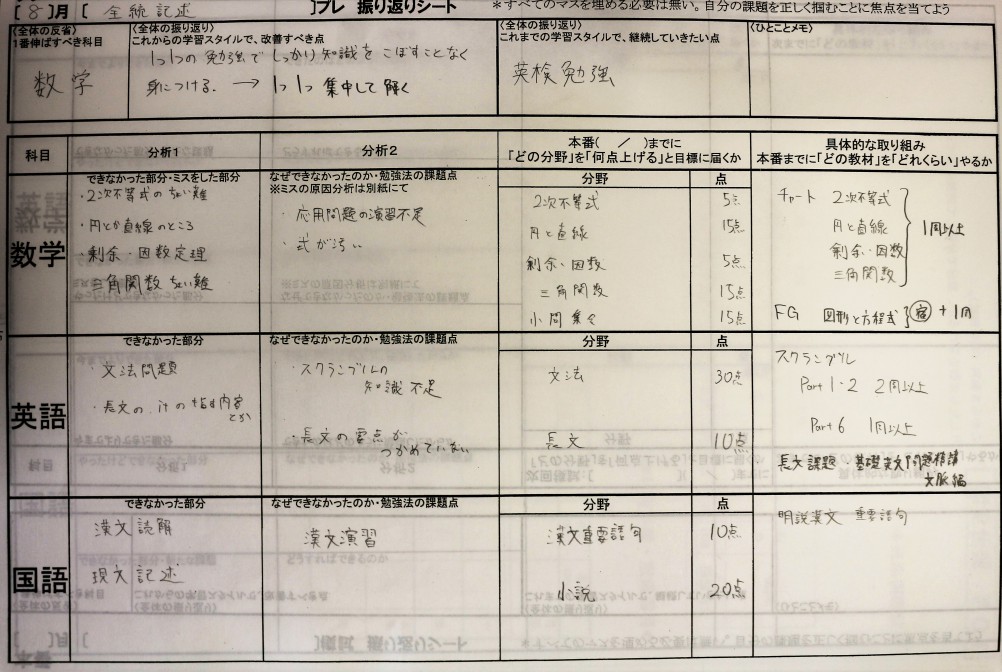 [8]月[ 全統記述 ]プレ 振り返りシート *すべてのマスを埋める必要は無い。自分の課題を正しく掴むことに焦点を当てよう
〈全体の反省〉
1番伸ばすべき科目
数学
〈全体の振り返り〉
これからの学習スタイルで、改善すべき点
1つ1つの勉強でしっかり知識をこぼすことなく
身につける. → 1つ1つ集中して解く
〈全体の振り返り〉
これまでの学習スタイルで、継続していきたい点
英検勉強
〈ひとことメモ〉
科目
分析1
分析2
本番( / )までに
「どの分野」を「何点上げる」と目標に届くか
具体的な取り組み
本番までに「どの教材」を「どれくらい」やるか
数学
できなかった部分・ミスをした部分
・2次不等式のちょい難
・円とか直線のところ
・剰余・因数定理
・三角関数ちょい難
なぜできなかったのか・勉強法の課題点
※ミスの原因分析は別紙にて
・応用問題の演習不足
・式が汚い
分野 点
2次不等式 5点
円と直線 15点
剰余・因数 5点
三角関数 15点
小問集合 15点
チャート 2次不等式
円と直線
剰余・因数
三角関数
1周以上
FG 図形と方程式 宿 + 1周
英語
できなかった部分
・文法問題
・長文の itの指す内容
とか
なぜできなかったのか・勉強法の課題点
・スクランブルの
知識不足
・長文の要点が
つかめていない
分野 点
文法 30点
長文 10点
スクランブル
Part 1・2 2周以上
Part 6 1周以上
長文課題・基礎英文問題精講
文脈編
国語
できなかった部分
漢文読解
現文記述
なぜできなかったのか・勉強法の課題点
漢文演習
分野 点
漢文重要語句 10点
小説 20点
明説漢文 重要語句